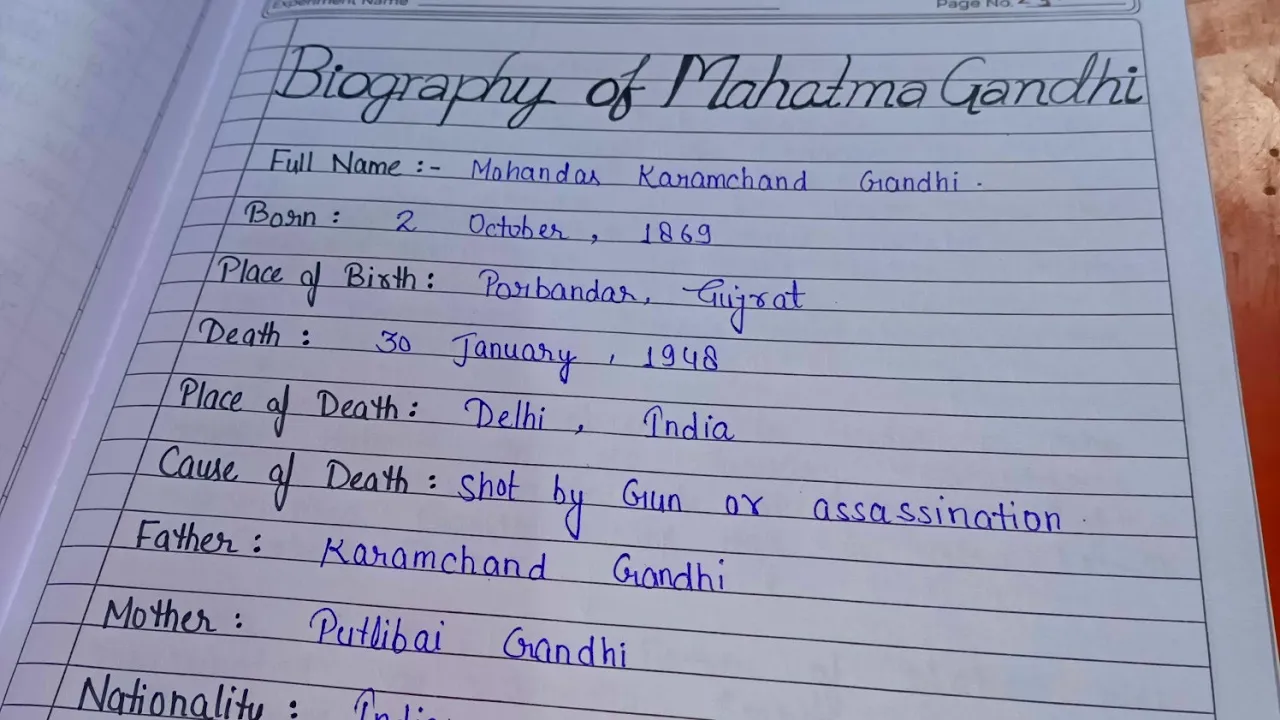 Experiment Name
Page No.
Biography of Mahatma Gandhi
Full Name :- Mohandas Karamchand Gandhi .
Born : 2 October , 1869
Place of Birth : Porbandar, Gujrat
Death : 30 January , 1948
Place of Death : Delhi , India
Cause of Death : shot by Gun or assassination .
Father : Karamchand Gandhi
Mother : Putlibai Gandhi
Nationality :